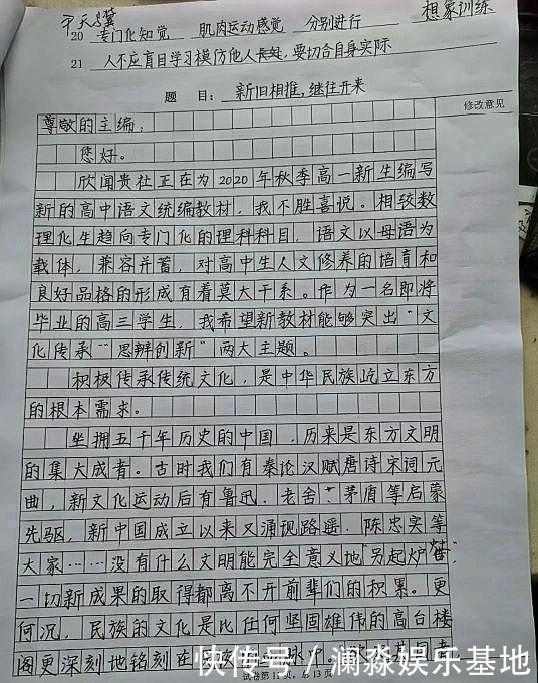 想象训练
20 专门化知觉 肌肉运动感觉 分别进行
21 人不应盲目学习模仿他人长处,要切合自身实际
题 目: 新旧相推,继往开来
修改意见
尊敬的主编:
您好。
欣闻贵社正在为2020年秋季高一新生编写
新的高中语文统编教材,我不胜喜悦。相较数
理化生趋向专门化的理科科目,语文以母语为
载体,兼容并蓄,对高中生人文修养的培育和
良好品格的形成有着莫大干系。作为一名即将
毕业的高三学生,我希望新教材能够突出“文
化传承”“思辨创新”两大主题。
积极传承传统文化,是中华民族屹立东方
的根本需求。
坐拥五千年历史的中国,历来是东方文明
的集大成者。古时我们有秦论汉赋唐诗宋词元
曲,新文化运动后有鲁迅、老舍、茅盾等启蒙
先驱,新中国成立以来又涌现路遥、陈忠实等
大家……没有什么文明能完全意义地“另起炉灶”,
一切新成果的取得都离不开前辈们的积累。更
何况,民族的文化是比任何坚固雄伟的高台楼
阁更深刻地铭刻在
试卷第11页,总13页
快传号 / 澜淼娱乐基地